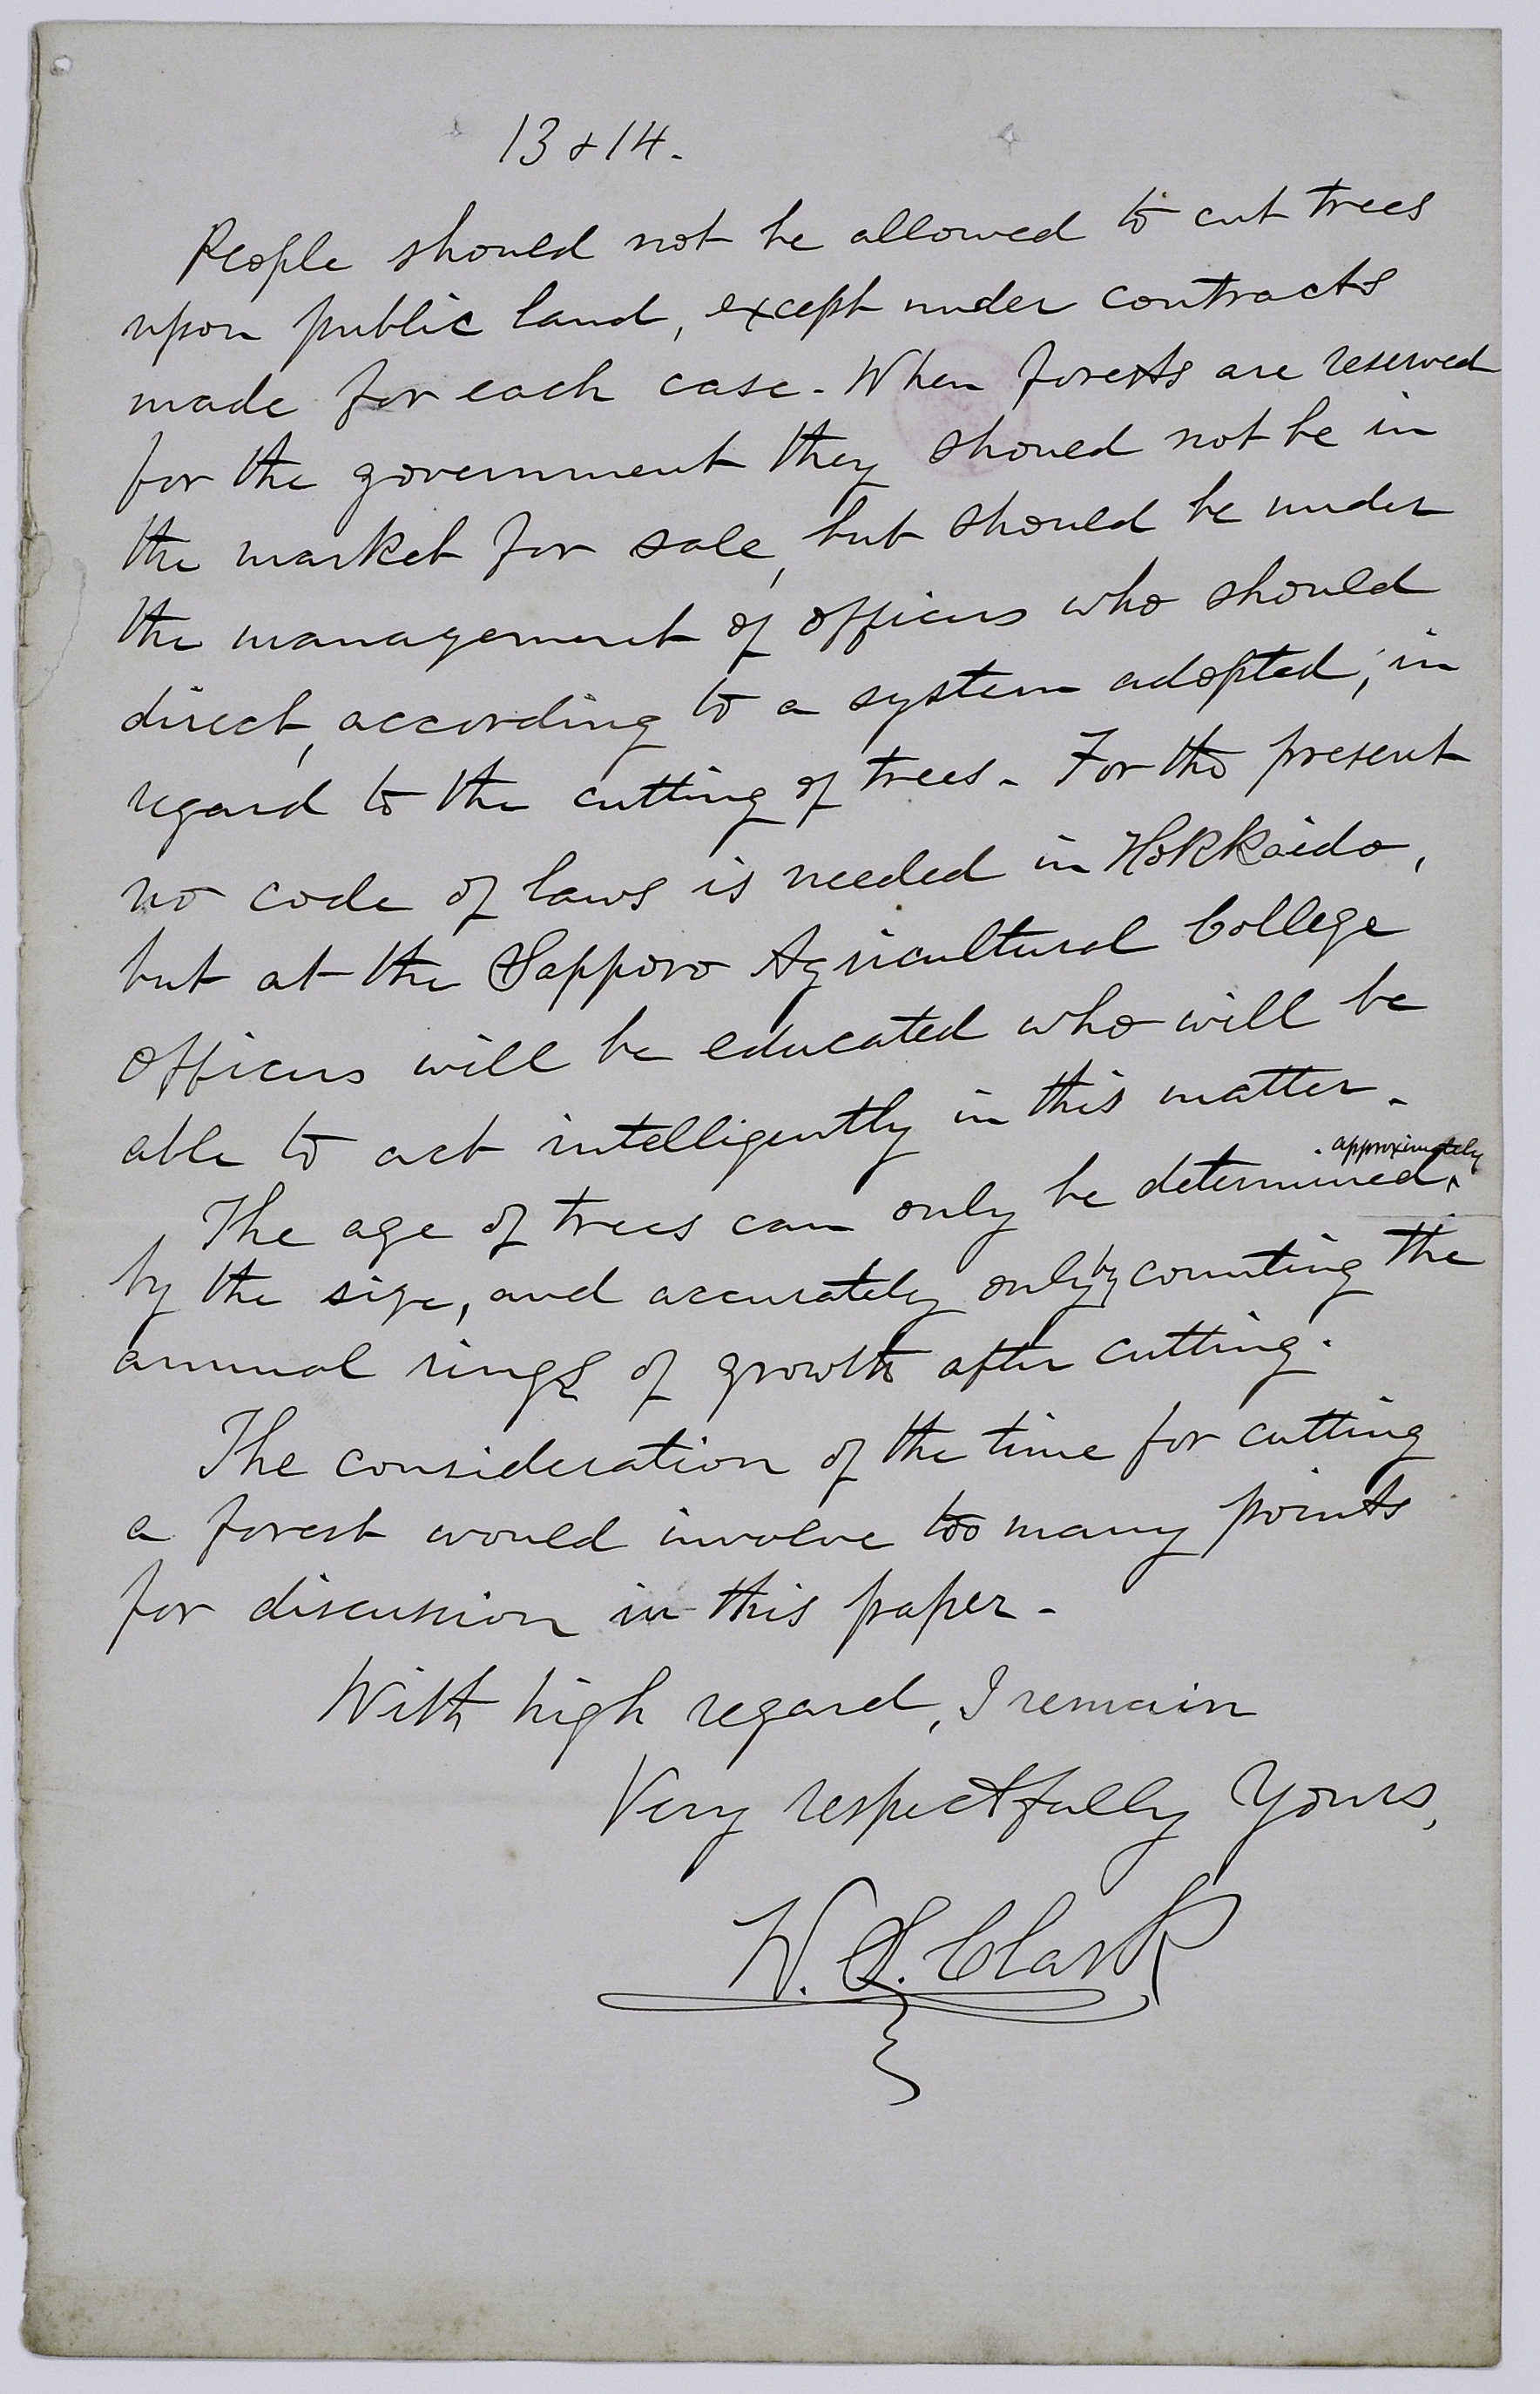 13 & 14.
People should not be allowed to cut trees
upon public land, except under contracts
made for each case. When forests are reserved
for the government they should not be in
the market for sale, but should be under
the management of officers who should
direct, according to a system adopted, in
regard to the cutting of trees. For the present
no code of laws is needed in Hokkaido,
but at the Sapporo Agricultural College
officers will be educated who will be
able to act intelligently in this matter.
The age of trees can only be determined approximately
by the size, and accurately only by counting the
annual rings of growth after cutting.
The consideration of the time for cutting
a forest would involve too many points
for discussion in this paper.
With high regard, I remain
Very respectfully Yours,
W. S. Clark